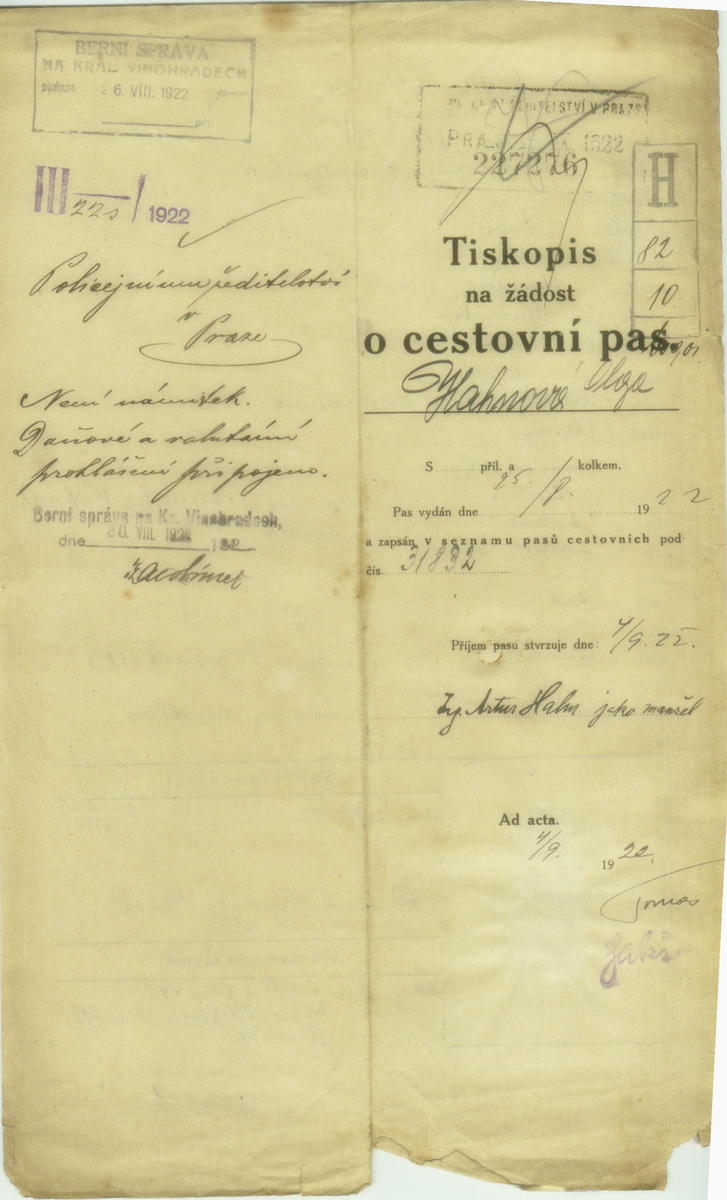 BERNÍ SPRÁVA
NA KRÁL. VINOHRADECH
podáno 26. VIII. 1922
III 225 / 1922
Policejnímu ředitelství
v
Praze
Není námitek.
Daňové a valutární
prohlášení připojeno.
Berní správa na Kr. Vinohradech,
dne 30. VIII. 1922 192
V PRAZE
PRAHA 1922
227276
H
82
10
Tiskopis
na žádost
o cestovní pas.
Hahnová Olga
S příl. a kolkem.
Pas vydán dne 25/8. 1922
a zapsán v seznamu pasů cestovních pod
čís. 31892
Příjem pasu stvrzuje dne: 4/9. 22.
Ing. Artur Hahn jako manžel
Ad acta.
4/9. 1922.